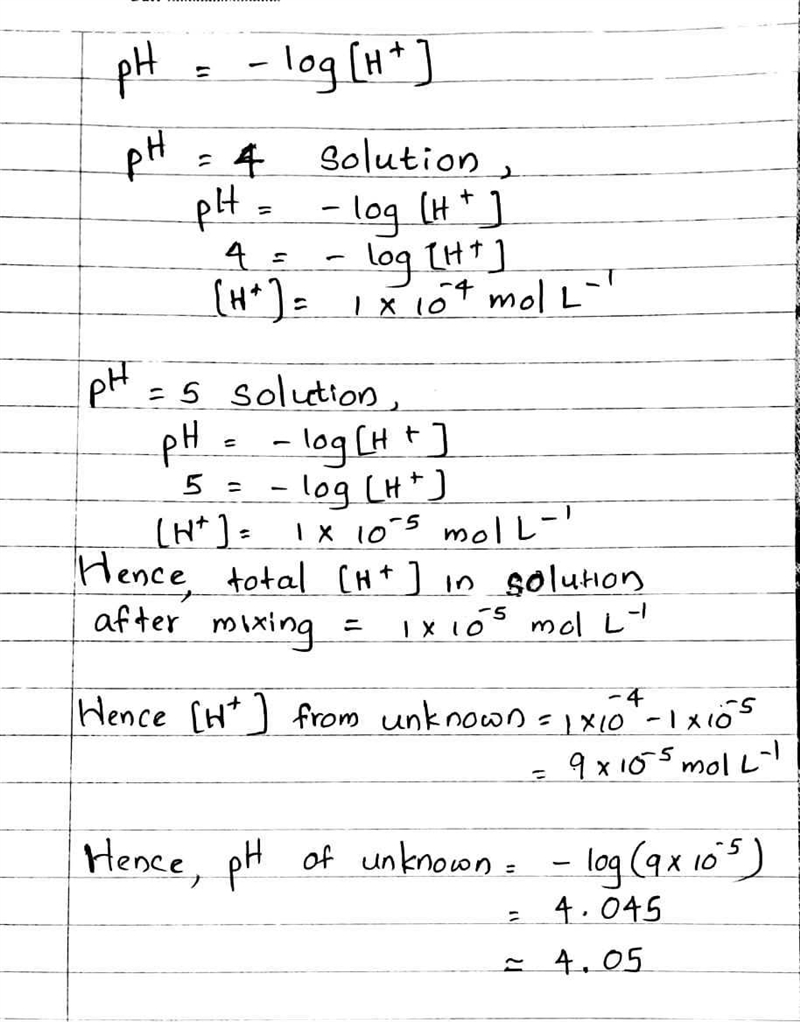 pH = - log [H⁺]
pH = 4 Solution,
pH = - log [H⁺]
4 = - log [H⁺]
[H⁺] = 1 × 10⁻⁴ mol L⁻¹
pH = 5 solution,
pH = - log [H⁺]
5 = - log [H⁺]
[H⁺] = 1 × 10⁻⁵ mol L⁻¹
Hence, total [H⁺] in solution
after mixing = 1 × 10⁻⁵ mol L⁻¹
Hence [H⁺] from unknown = 1×10⁻⁴ - 1×10⁻⁵
= 9 × 10⁻⁵ mol L⁻¹
Hence, pH of unknown = - log (9 × 10⁻⁵)
= 4.045
≈ 4.05